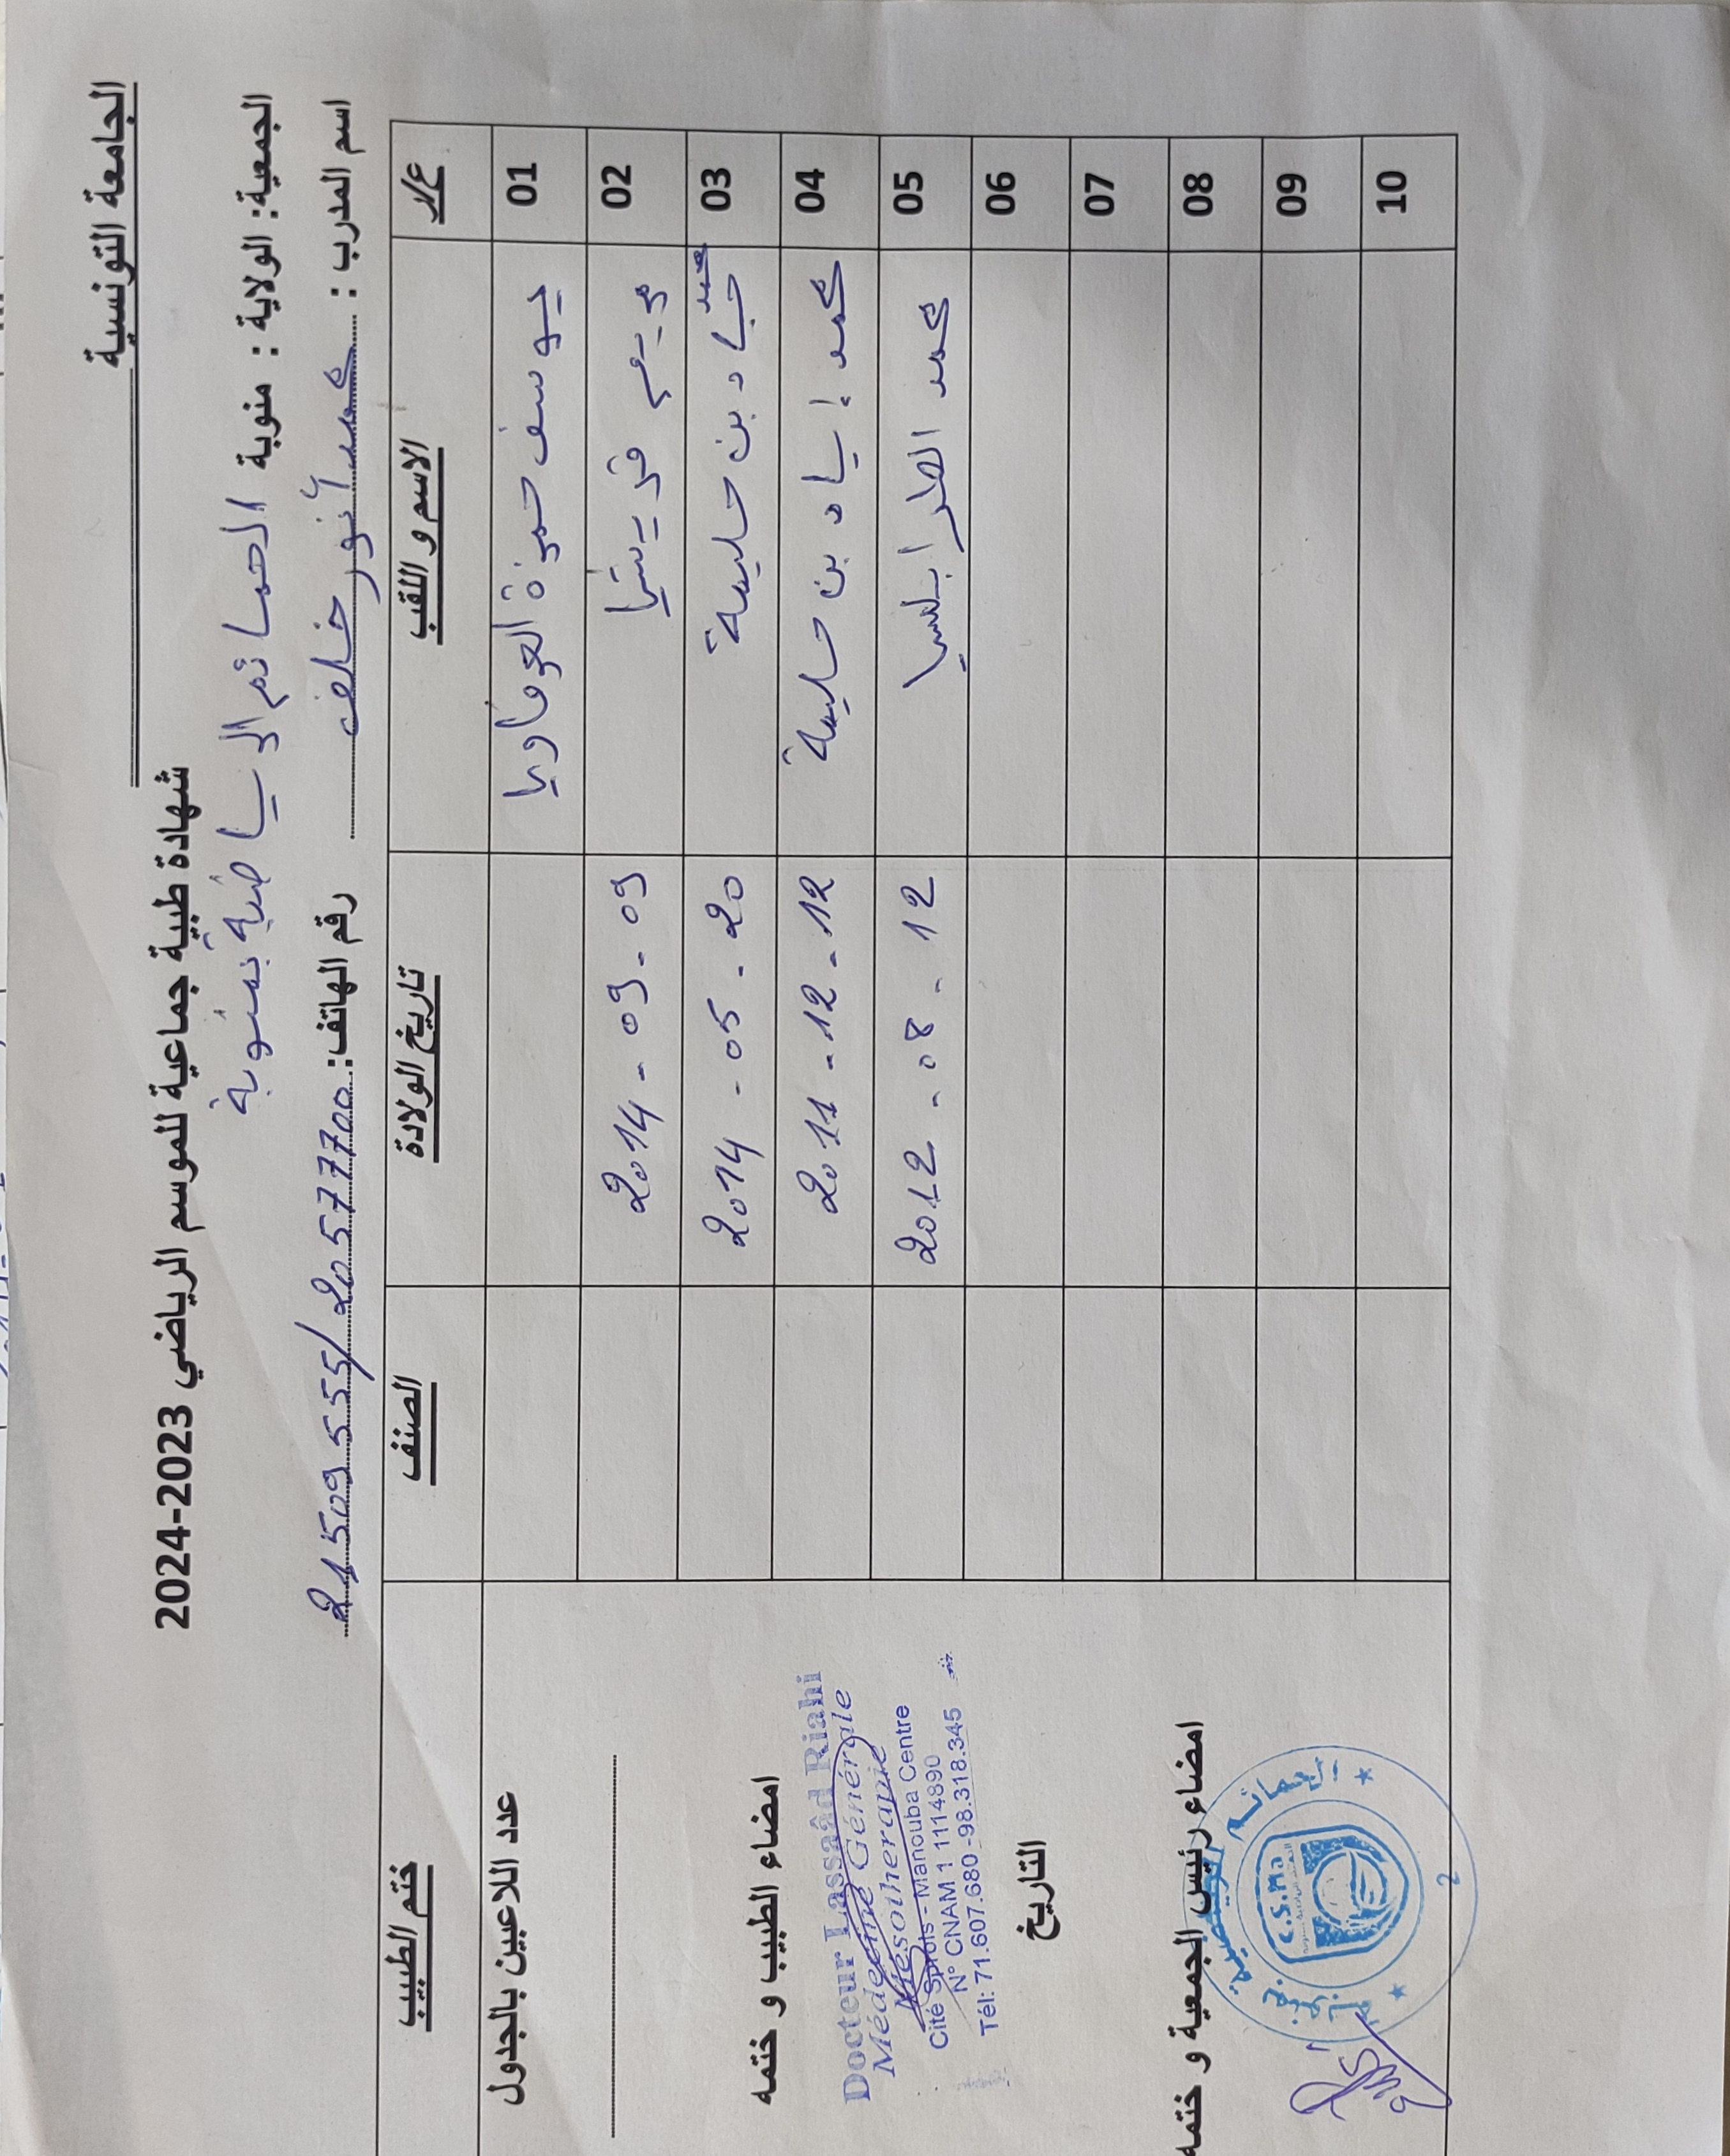 الجامعة التونسية
شهادة طبية جماعية للموسم الرياضي 2023-2024
الجمعية: الولاية : منوبة الحمائم الرياضية بمنوبة
اسم المدرب : محمد أنور خلف رقم الهاتف: 21509555/20577700
ع/ر الاسم و اللقب تاريخ الولادة الصنف ختم الطبيب
01 يوسف حمزة
02 مريم 2014-09-09
03 محمد جياد بن حليمة 2014-05-20
04 محمد إياد بن حليمة 2011-12-12
05 محمد الطرابلسي 2012-08-12
06
07
08
09
10
عدد اللاعبين بالجدول
امضاء الطبيب و ختمه
Docteur Lassaâd Riahi
Médecine Générale
Mésothérapie
Cité Sprols - Manouba Centre
N° CNAM 1 1114890
Tél: 71.607.680 -98.318.345
التاريخ
امضاء رئيس الجمعية و ختمه
C.S.Ma